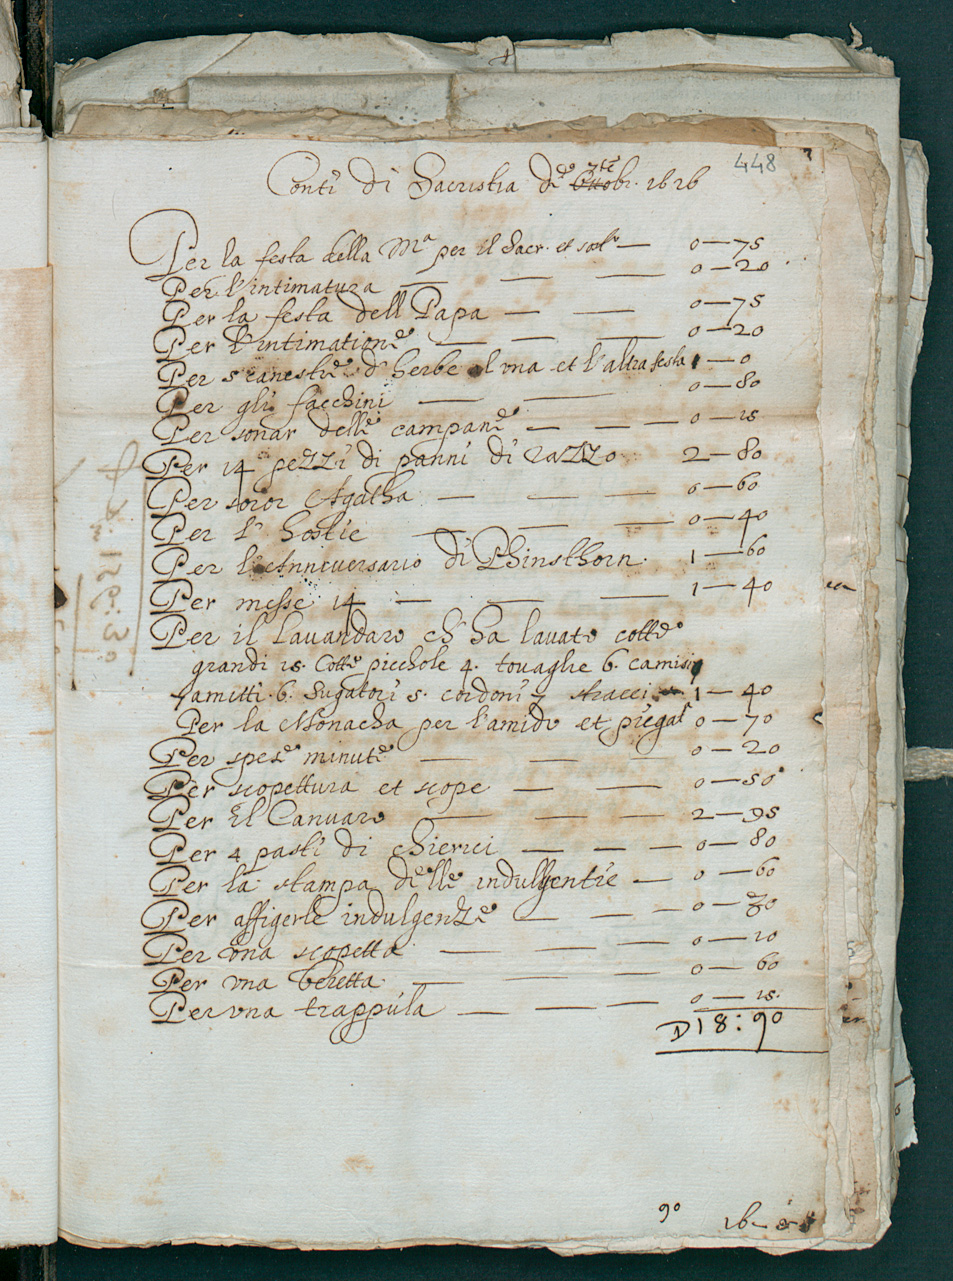 448
Conti di Sacristia di Ottobr. 1626
Per la festa della M.ª per il Sacr. et — 0—75
Per l'intimatura — — — 0—20
Per la festa dell Papa — — 0—75
Per l'intimatione — — — 0—20
Per canestre d'herbe l'una et l'altra festa 1—0
Per gli facchini — — 0—80
Per sonar delle campane — — — 0—15
Per 14 pezzi di panni di razzo 2—80
Per soror Agatha — — — 0—60
Per l' hostie — — — 0—40
Per l'Anniversario di Phinsthorn. 1—60
Per messe 14 — — — 1—40
Per il lavandaro ch' ha lavato cotte
grandi 15. Cotte picchole 4. tovaghe 6. camisi
amitti 6. sugatori 5. cordoni 1—40
Per la Monacha per l'amido et piegar 0—70
Per spese minute — — — 0—20
Per scopettura et scope — — 0—50
Per il Canvaro — — — 2—95
Per 4 pasti di chierici — — — 0—80
Per la stampa delle indulgentie — 0—60
Per affigerle indulgenze — — — 0—30
Per una scopetta — — — 0—10
Per una beretta — — — 0—60
Per una trappula — — — 0—15
D 18:90
90 16—